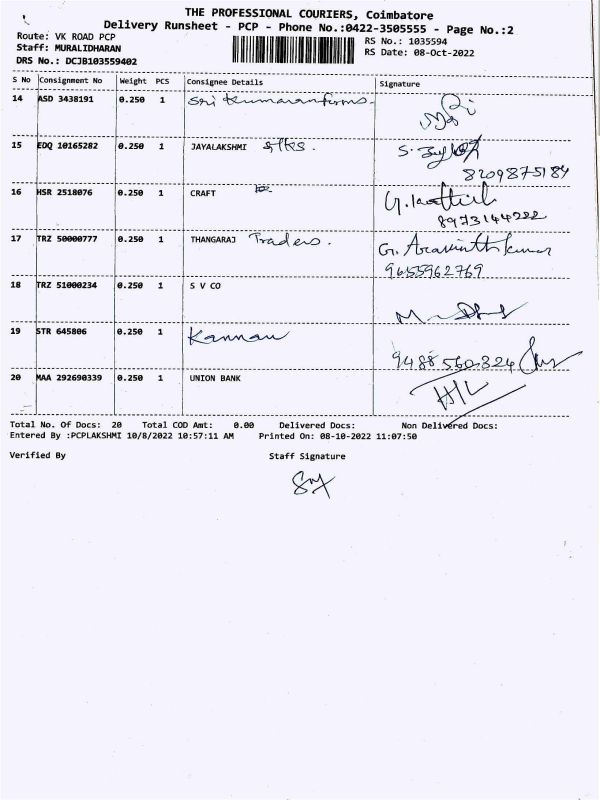 THE PROFESSIONAL COURIERS, Coimbatore
Delivery Runsheet - PCP - Phone No.:0422-3505555 - Page No.:2
Route: VK ROAD PCP
RS No.: 1035594
Staff: MURALIDHARAN
RS Date: 08-Oct-2022
DRS No.: DCJB103559402
S No Consignment No Weight PCS Consignee Details Signature
14 ASD 3438191 0.250 1 Sri Kumaran firms.
15 EDQ 10165282 0.250 1 JAYALAKSHMI
8209875184
16 HSR 2518076 0.250 1 CRAFT
8973144222
17 TRZ 50000777 0.250 1 THANGARAJ Traders. G. Aravinth kumar
9655962769
18 TRZ 51000234 0.250 1 S V CO
19 STR 645806 0.250 1 Kannan
9488560324
20 MAA 292690339 0.250 1 UNION BANK
Total No. Of Docs: 20 Total COD Amt: 0.00 Delivered Docs: Non Delivered Docs:
Entered By :PCPLAKSHMI 10/8/2022 10:57:11 AM Printed On: 08-10-2022 11:07:50
Verified By Staff Signature